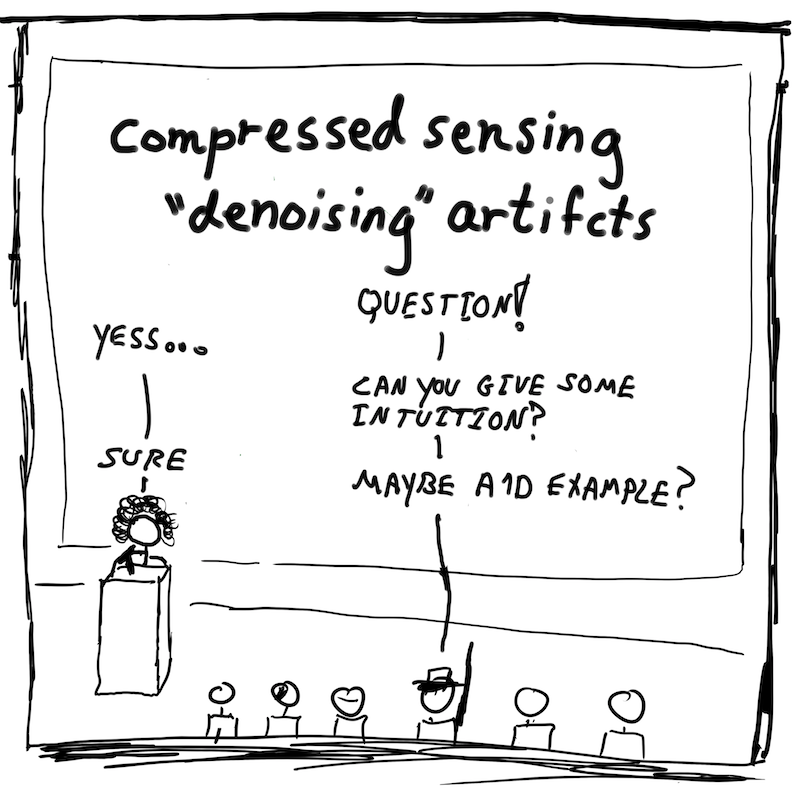 compressed sensing
"denoising" artifcts
QUESTION!
YESS...
CAN YOU GIVE SOME
INTUITION?
SURE
MAYBE A 1D EXAMPLE?